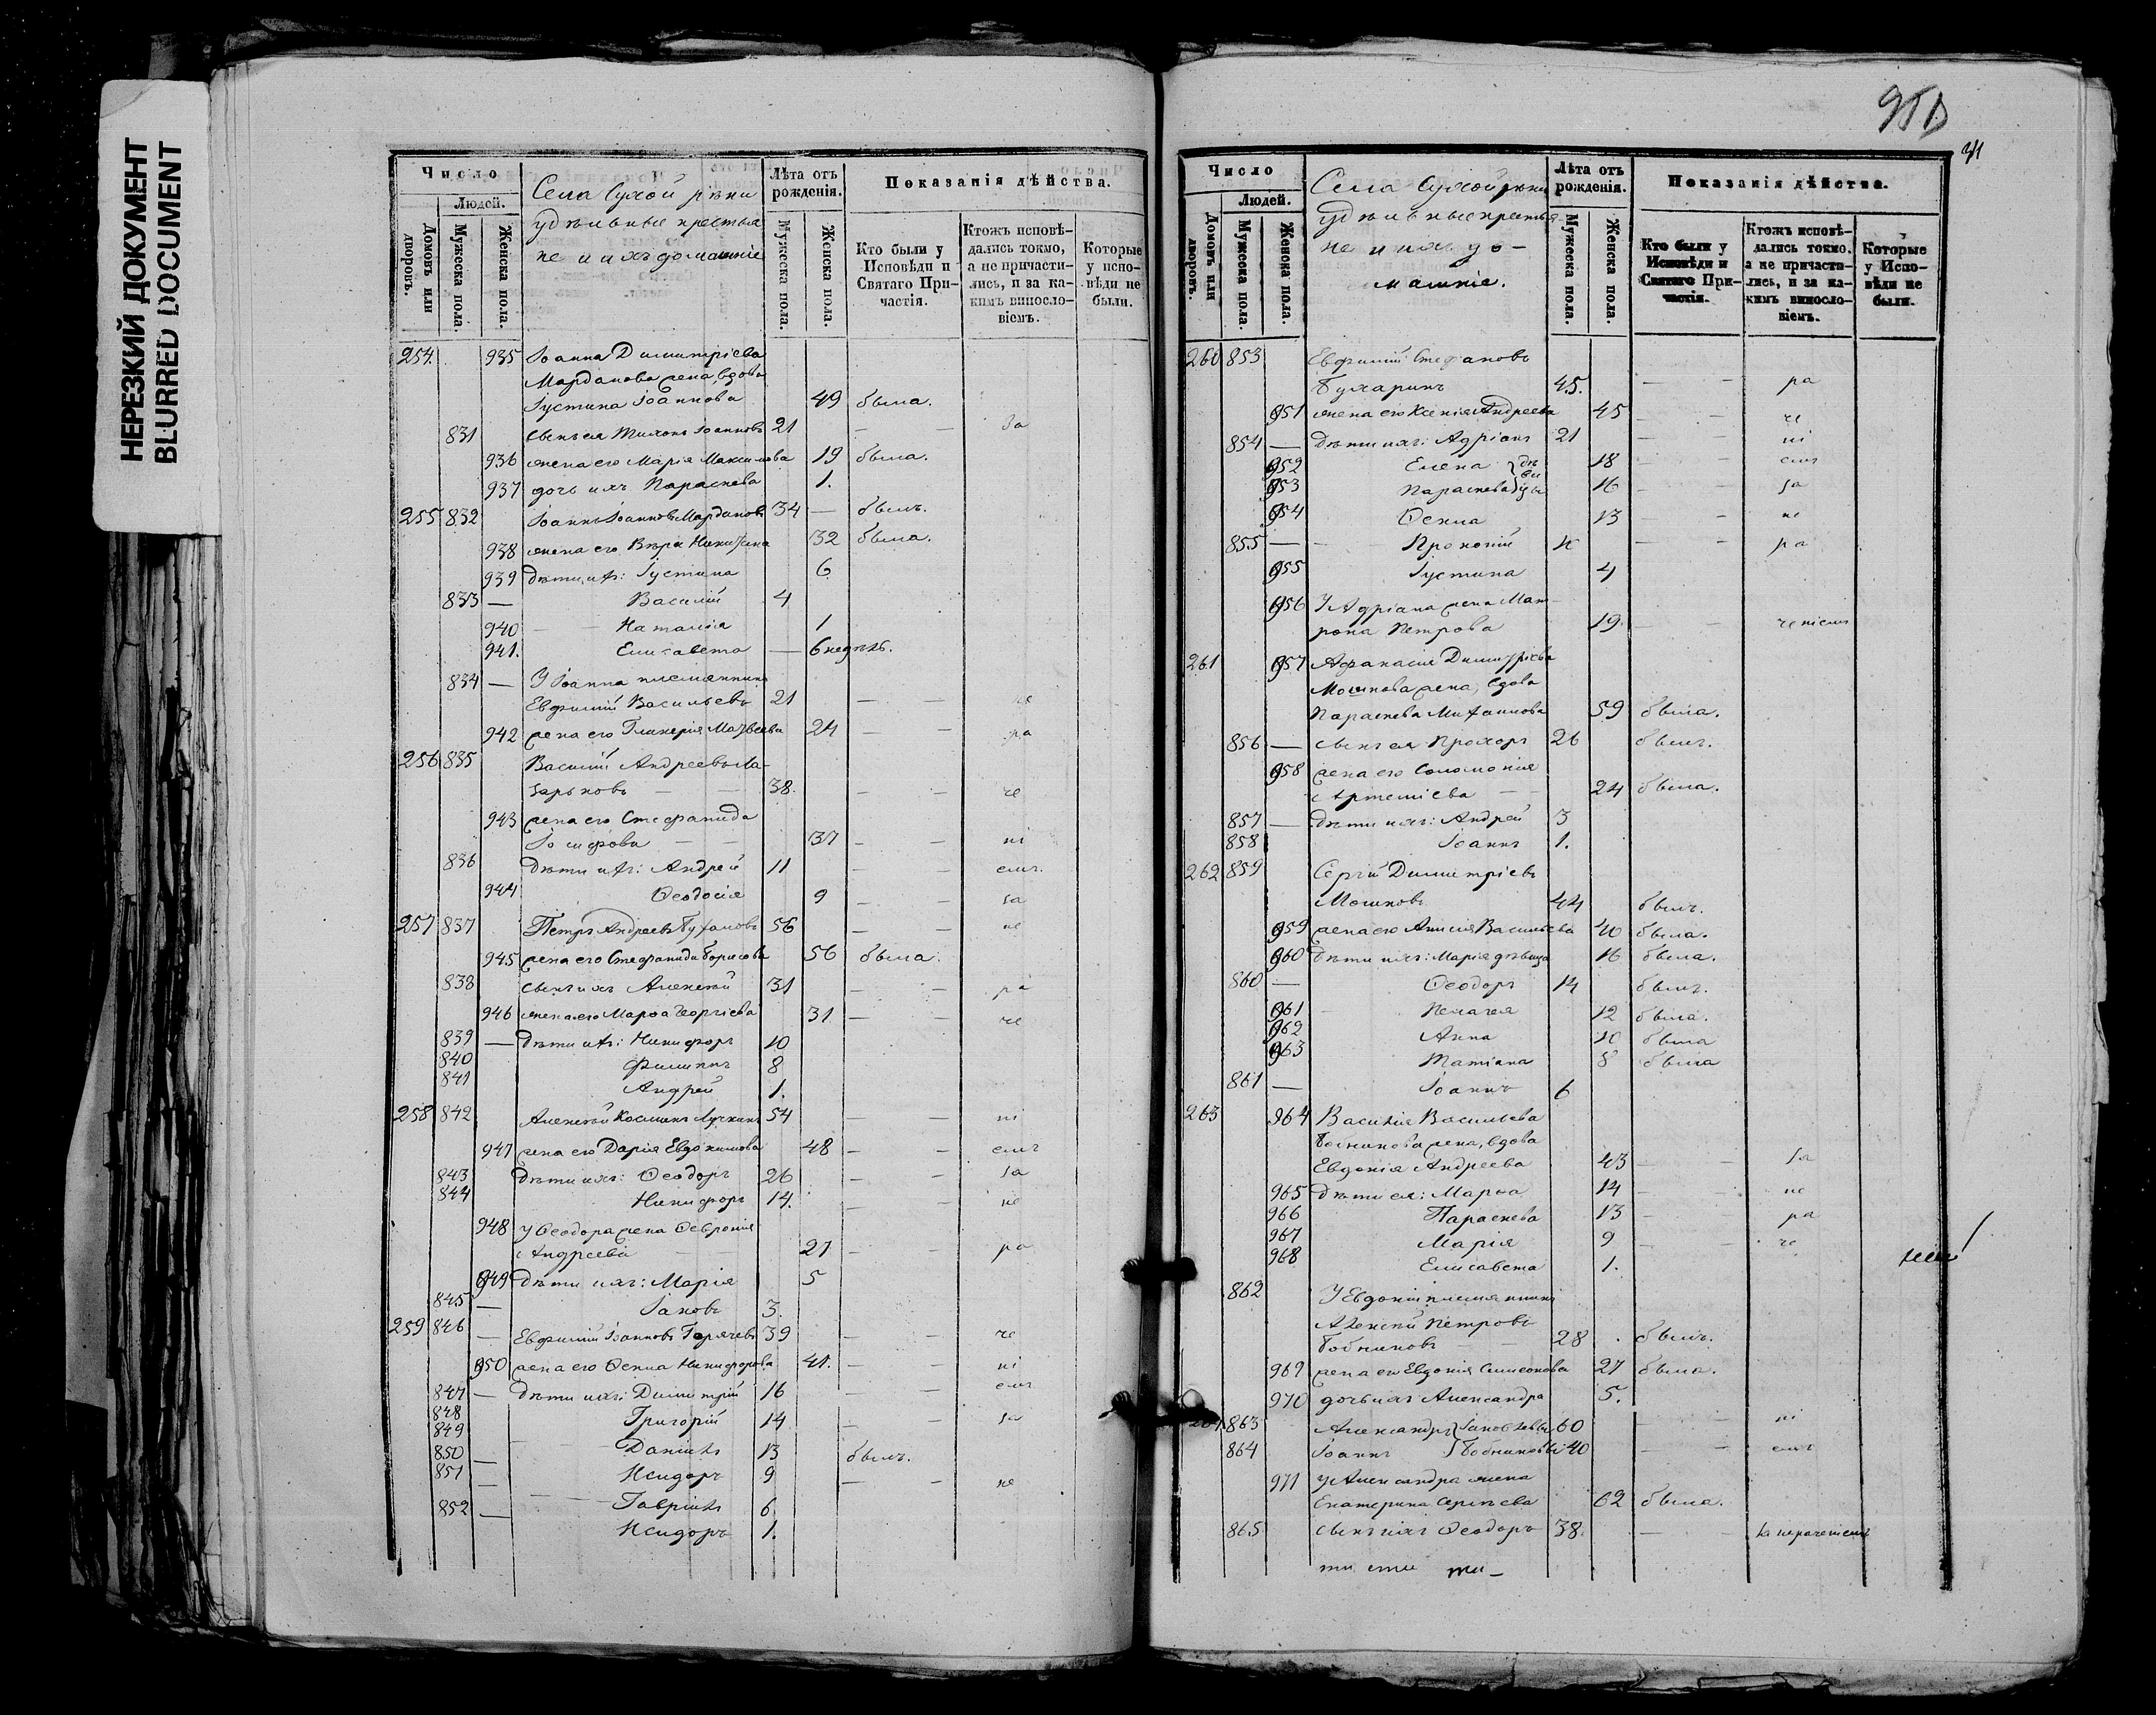 НЕРЕЗКИЙ ДОКУМЕНТ
BLURRED DOCUMENT
Число
Людей.
Домовъ или дворовъ.
Мужеска пола.
Женска пола.
Села Сухой рѣки
удѣльные крестья
не и ихъ домашніе
Лѣта отъ рожденія.
Мужеска пола.
Женска пола.
Показанія дѣйства.
Кто были у Исповѣди и Святаго При-частія.
Ктожъ исповѣ-дались токмо, а не причасти-лись, и за ка-кимъ виносло-віемъ.
Которые у испо-вѣди не были.
254. 935 Іоанна Димитріева
Марданова жена, вдова
Іустина Іоаннова 49 была.
831 сынъ ея Тихонъ Іоанновъ 21 — — За
936 жена его Марія Максимова 19 была.
937 дочь ихъ Параскева 1.
255 832 Іоаннъ Іоанновъ Мардановъ 34 — былъ.
938 жена его Вѣра Никитина 32 была.
939 дѣти ихъ: Іустина 6
833 — Василій 4
940 — — Наталія 1
941. Елисавета — 6 недѣль.
834 — У Іоанна племянникъ
Евфимій Васильевъ 21 — — не
942 жена его Гликерія Матвеева 24 — — ра
256 835 Василій Андреевъ Ла-
зарьковъ — — 38. — — че
943 жена его Стефанида
Іосифова — — 37 — — ні
836 дѣти ихъ: Андрей 11 — — емъ.
944 Ѳеодосія 9 — — за
257 837 Петръ Андреевъ 56 — — не
945 жена его Стефанида Борисова 56 была.
838 сынъ ихъ Алексѣй 31 — — ра
946 жена его Марѳа Георгіева 31 — — че
839 — дѣти ихъ: Никифоръ 10
840 Филиппъ 8
841 Андрей 1.
258 842 Алексѣй Косминъ 54 — — ні
947 жена его Дарія Евдокимова 48 — — емъ
843 дѣти ихъ: Ѳеодоръ 26 — — за
844 Никифоръ 14. — — не
948 У Ѳеодора жена Ѳеvронія
Андреева — — 27 — — ра
949 дѣти ихъ: Марія 5
845 — Іаковъ 3.
259 846 — Евфимій Іоанновъ Горячевъ 39 — — че
950 жена его Ѳекла Никифорова 41. — — ні
847 — дѣти ихъ: Димитрій 16 — — емъ
848 Григорій 14 — — за
849
850 — Даніилъ 13 былъ.
851 — Исидоръ 9 — — не
852 — Гавріилъ 6
Исидоръ 1.
950
Число
Людей.
Домовъ или дворовъ.
Мужеска пола.
Женска пола.
Села Сухой рѣки
удѣльные крестья-
не и ихъ до-
машніе.
Лѣта отъ рожденія.
Мужеска пола.
Женска пола.
Показанія дѣйства.
Кто были у Исповѣди и Святаго При-частія.
Ктожъ исповѣ-дались токмо, а не причасти-лись, и за ка-кимъ виносло-віемъ.
Которые у Испо-вѣди не были.
260 853 Евфимій Стефановъ
Бухаринъ 45. — — ра
951 жена его Ксенія Андреева 45 — — че
854 — дѣти ихъ: Адріанъ 21 — — ні
952 Елена } дѣ 18 — — емъ
953 Параскева } вицы 16 — — за
954 Ѳекла 13 — — не
855 — Прокопій — — ра
955 Іустина 4
956 У Адріана жена Мат-
рона Петрова 19. — — ченіемъ
261 957 Афанасія Димитріева
Мошкова жена, вдова
Параскева Михайлова 59 была.
856 — сынъ ея Прохоръ 26 былъ.
958 жена его Соломонія
Артеміева — — 24 была.
857 — дѣти ихъ: Андрей 3
858 Іоаннъ 1.
262 859 Сергій Димитріевъ
Мошковъ 44 былъ.
959 жена его Анисія Васильева 40 была.
960 дѣти ихъ: Марія дѣвица 16 была.
860 — Ѳеодоръ 14 былъ.
961 Пелагея 12 была.
962 Анна 10 была
963 Татіана 8 была
861 — Іоаннъ 6
263 964 Василія Васильева
Бобникова жена, вдова
Евдокія Андреева 43 — — за
965 дѣти ея: Марѳа 14 — — не
966 Параскева 13 — ра
967 Марія 9 — — че
968 Елисавета 1.
862 У Евдокіи племянникъ
Алексѣй Петровъ
Бобниковъ — — 28 . былъ.
969 жена его Евдокія Симеонова 27 была.
970 дочь ихъ Александра 5.
264. 863 Александръ } Іаковлевы 60 — — ні
864 Іоаннъ } Бобниковы 40 — — емъ
971 У Александра жена
Екатерина Сергѣева 62 была.
865 сынъ ихъ Ѳеодоръ 38. — — за нераченіемъ